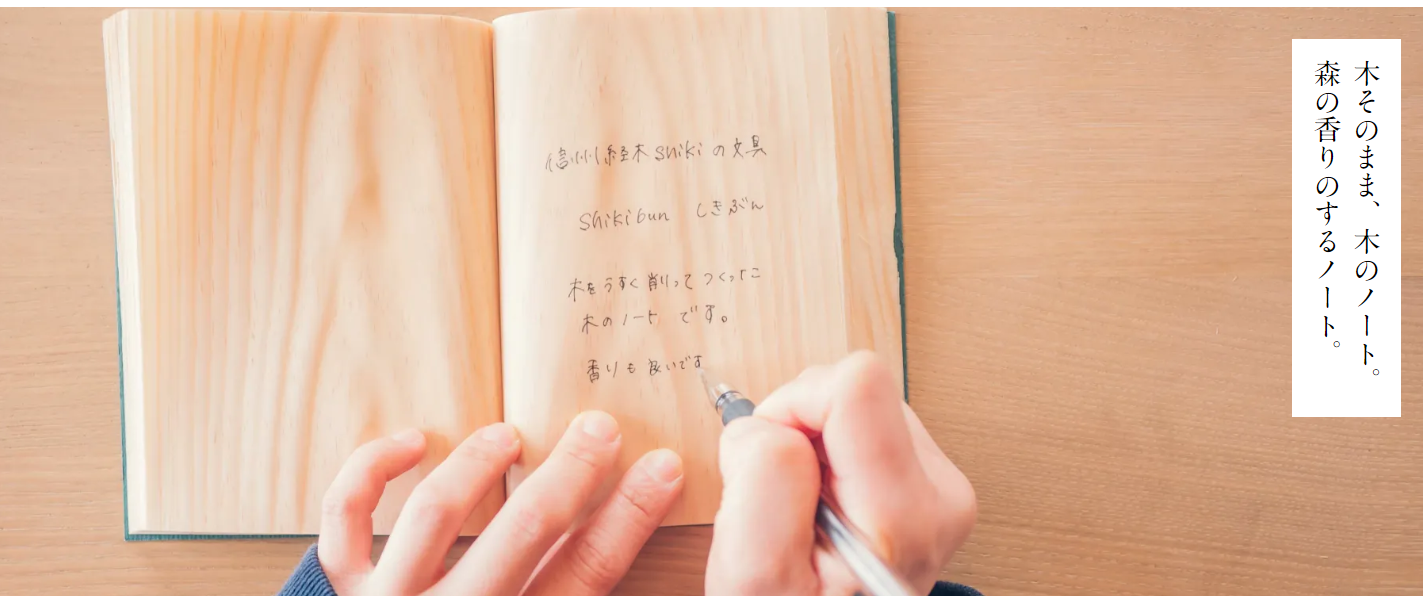 木そのまま、木のノート。
森の香りのするノート。
信州経木shikiの文具
shikibun しきぶん
木をうすく削ってつくった
木のノート です。
香りも良いです